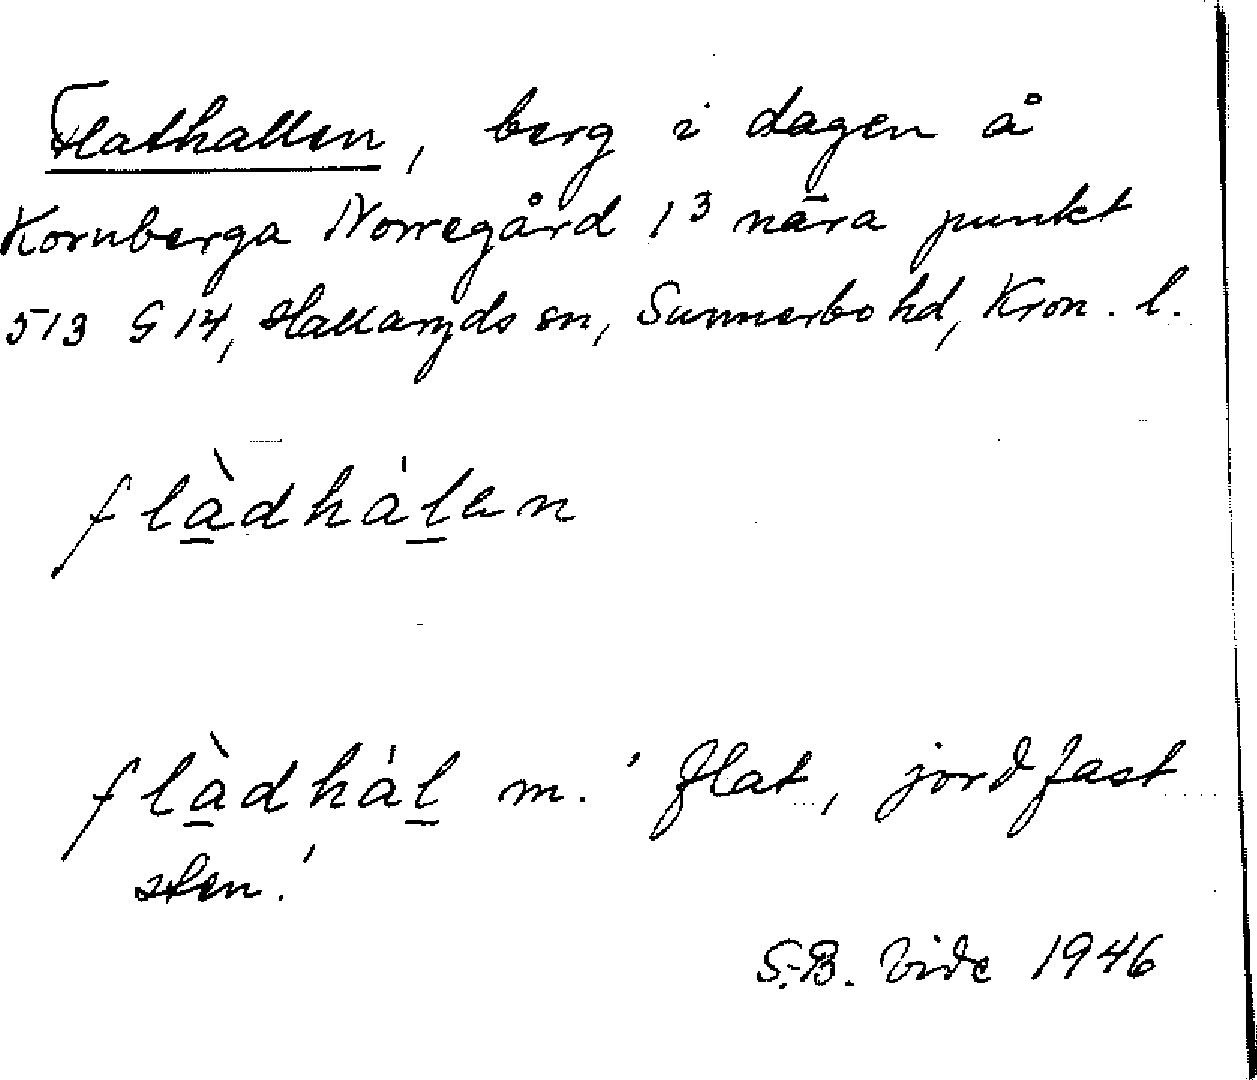 Flathallen, berg i dagen å
Kornberga Norregård 1³ nära punkt
513 G 14, Hallaryds sn, Sunnerbo hd, Kron. l.
flàdhálen
flàdhál m. 'flat, jordfast
sten.'
S.-B. Vide 1946